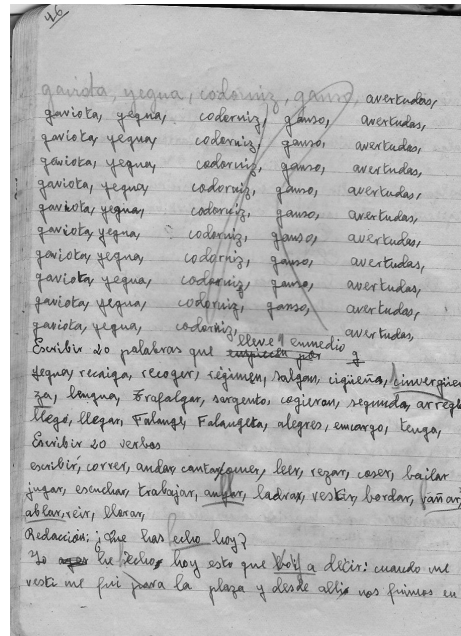 46
gaviota, yegua, codorniz, ganso, avertudas,
gaviota, yegua, codorniz, ganso, avertudas,
gaviota, yegua, codorniz, ganso, avertudas,
gaviota, yegua, codorniz, ganso, avertudas,
gaviota, yegua, codorniz, ganso, avertudas,
gaviota, yegua, codorniz, ganso, avertudas,
gaviota, yegua, codorniz, ganso, avertudas,
gaviota, yegua, codorniz, ganso, avertudas,
gaviota, yegua, codorniz, ganso, avertudas,
gaviota, yegua, codorniz, ganso, avertudas,
gaviota, yegua, codorniz, avertudas,
Escribir 20 palabras que lleve enmedio g
yegua, recaiga, recoger, régimen, salgan, cigüeña, sinvergüen
za, lengua, Trafalgar, sargento, cogieron, segunda, arregla
llegó, llegar, Falange, Falangeta, alegres, encargo, tenga,
Escribir 20 verbos
escribir, correr, andar, cantar, comer, leer, rezar, coser, bailar
jugar, escuchar, trabajar, ladrar, vestir, bordar, bañar,
ablar, reir, llorar,
Redacción: ¿Que has echo hoy?
Yo he echo hoy esto que boi a decir: cuando me
vesti me fui para la plaza y desde alli nos fuimos en